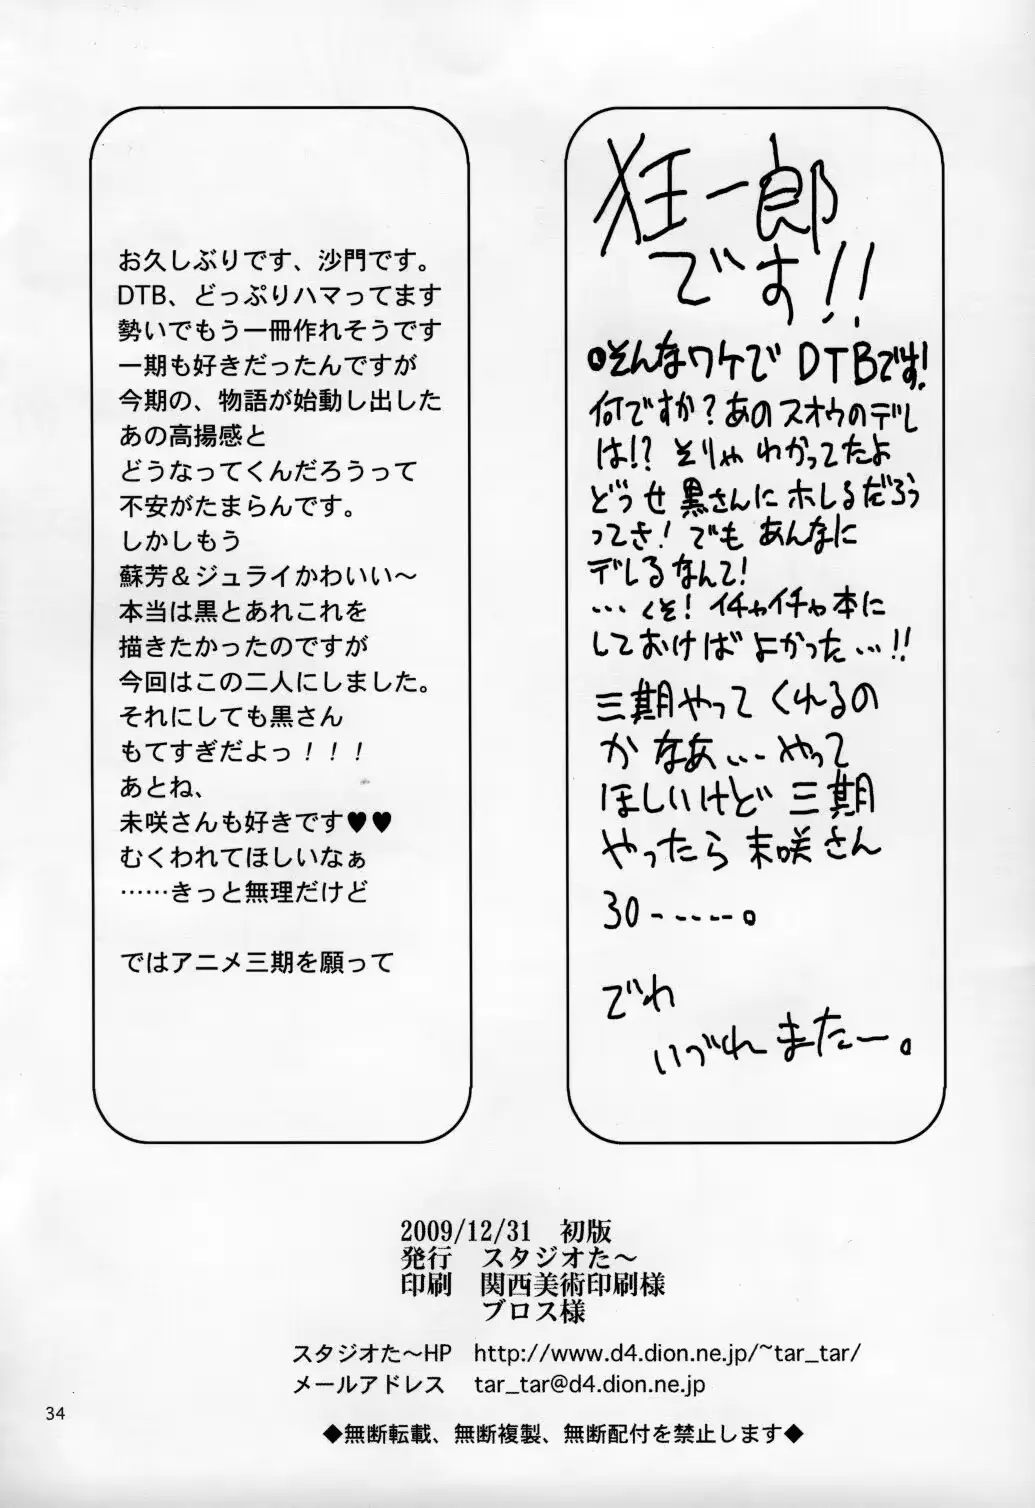 狂一郎
です!!
そんなワケで DTBです!
何ですか?あのスオウのデレ
は!?そりゃ わかってたよ
どうせ 黒さんに ホレるだろう
ってさ! でも あんなに
デレるなんて!
…くそ! イチャイチャ本に
しておけば よかった…!!
三期やって くれるの
か なあ… やって
ほしいけど 三期
やったら 未咲さん
30------。
でわ
いづれ またー。
お久しぶりです、沙門です。
DTB、どっぷりハマってます
勢いでもう一冊作れそうです
一期も好きだったんですが
今期の、物語が始動し出した
あの高揚感と
どうなってくんだろうって
不安がたまらんです。
しかしもう
蘇芳＆ジュライかわいい～
本当は黒とあれこれを
描きたかったのですが
今回はこの二人にしました。
それにしても黒さん
もてすぎだよっ！！！
あとね、
未咲さんも好きです♥♥
むくわれてほしいなぁ
……きっと無理だけど
ではアニメ三期を願って
2009/12/31　初版
発行　スタジオた～
印刷　関西美術印刷様
ブロス様
スタジオた～HP　http://www.d4.dion.ne.jp/~tar_tar/
メールアドレス　tar_tar@d4.dion.ne.jp
34
◆無断転載、無断複製、無断配付を禁止します◆